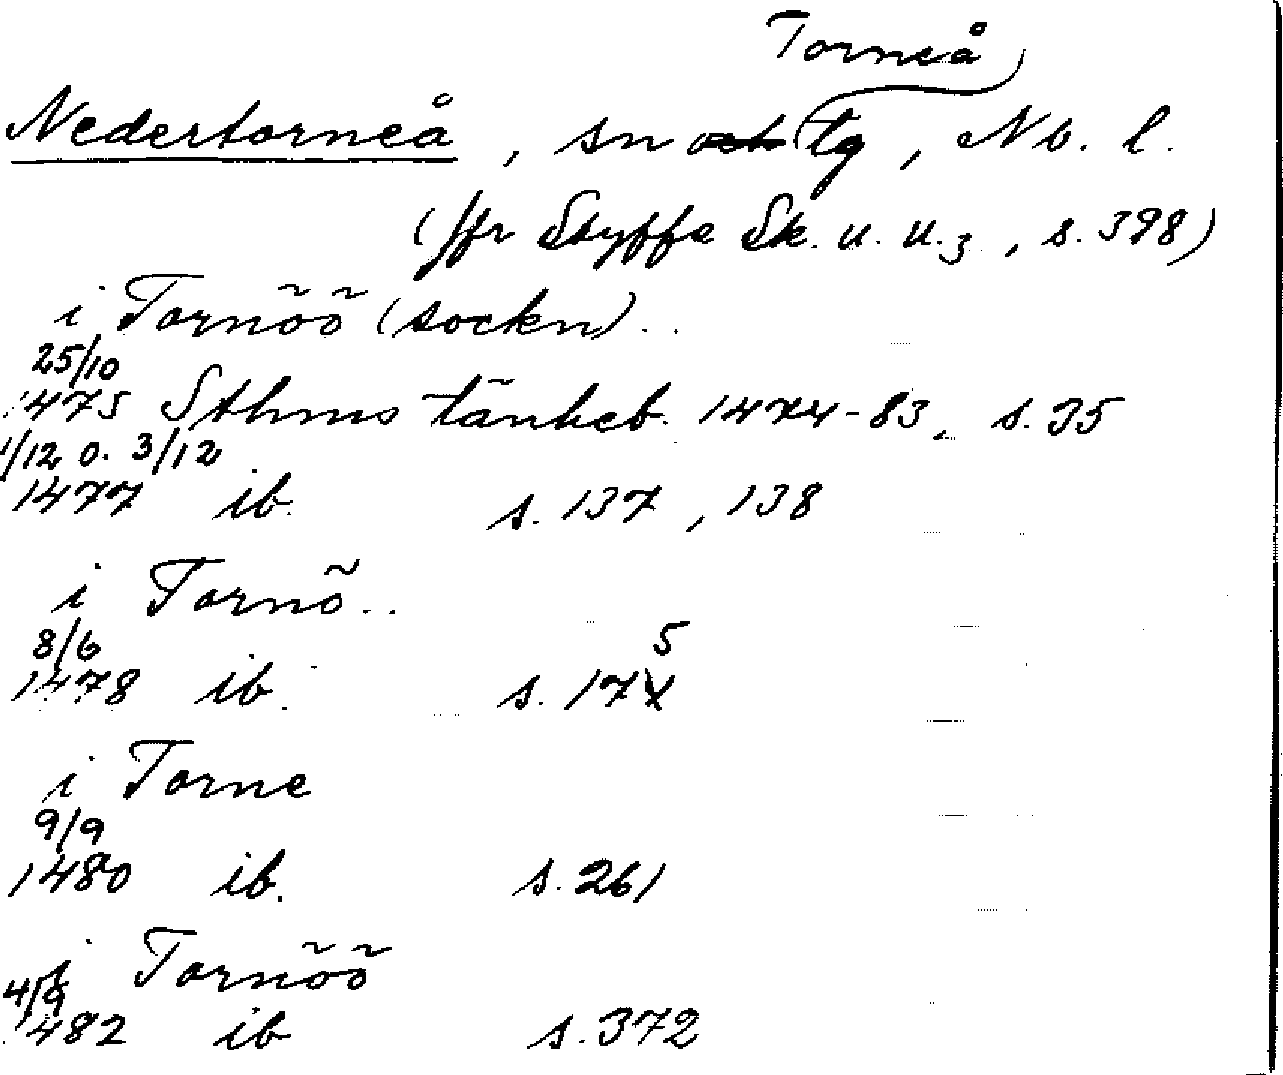 Torneå
Nedertorneå, sn och tg, Nb. l.
(jfr Styffe Sk. u. u. 3, s. 398)
i Tornöö (sockn)..
25/10
1475 Sthms tänkeb. 1474-83, s. 35
1/12 o. 3/12
1477 ib. s. 137, 138
i Tornö..
8/6 5
1478 ib. s. 17
i Torne
9/9
1480 ib. s. 261
i Tornöö
4/9
1482 ib s. 372